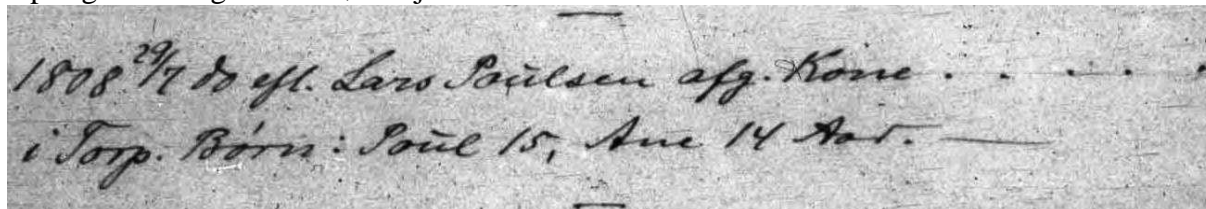 1808 29/7 do eft. Lars Poulsen afg. Kone . . . . .
i Torp. Børn: Poul 15, Ane 14 Aar. —